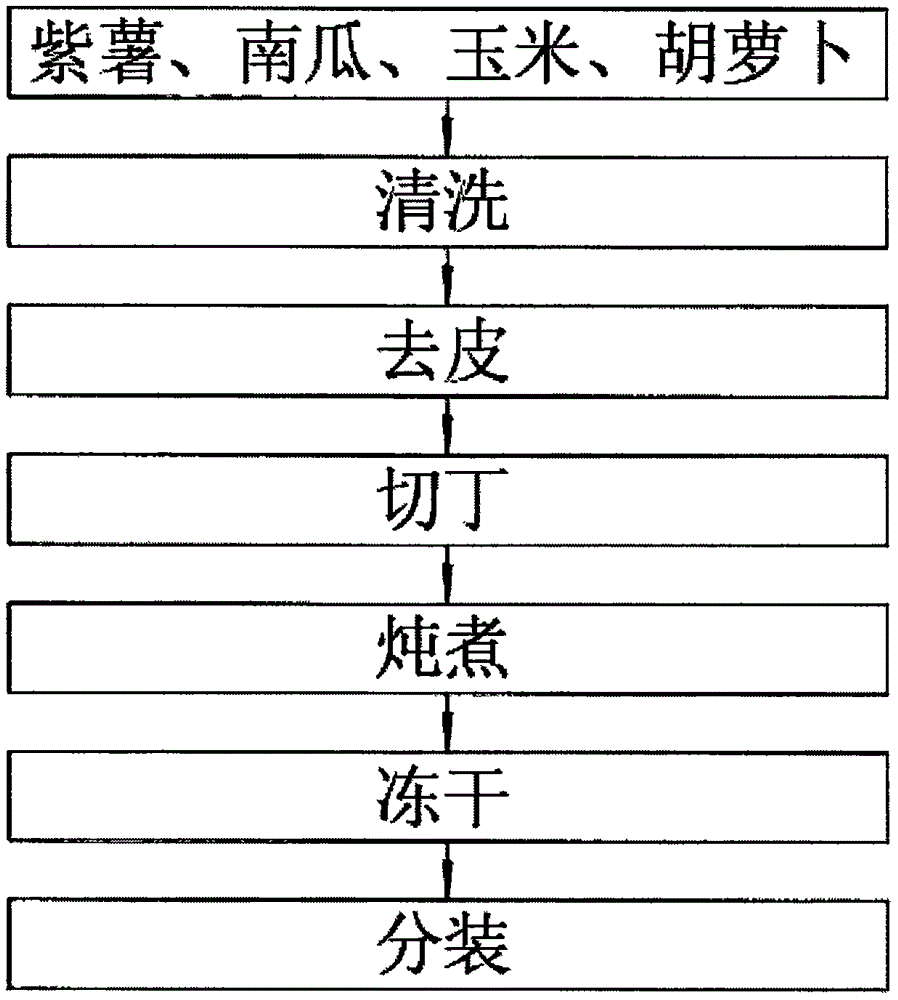 紫薯、南瓜、玉米、胡萝卜
清洗
去皮
切丁
炖煮
冻干
分装